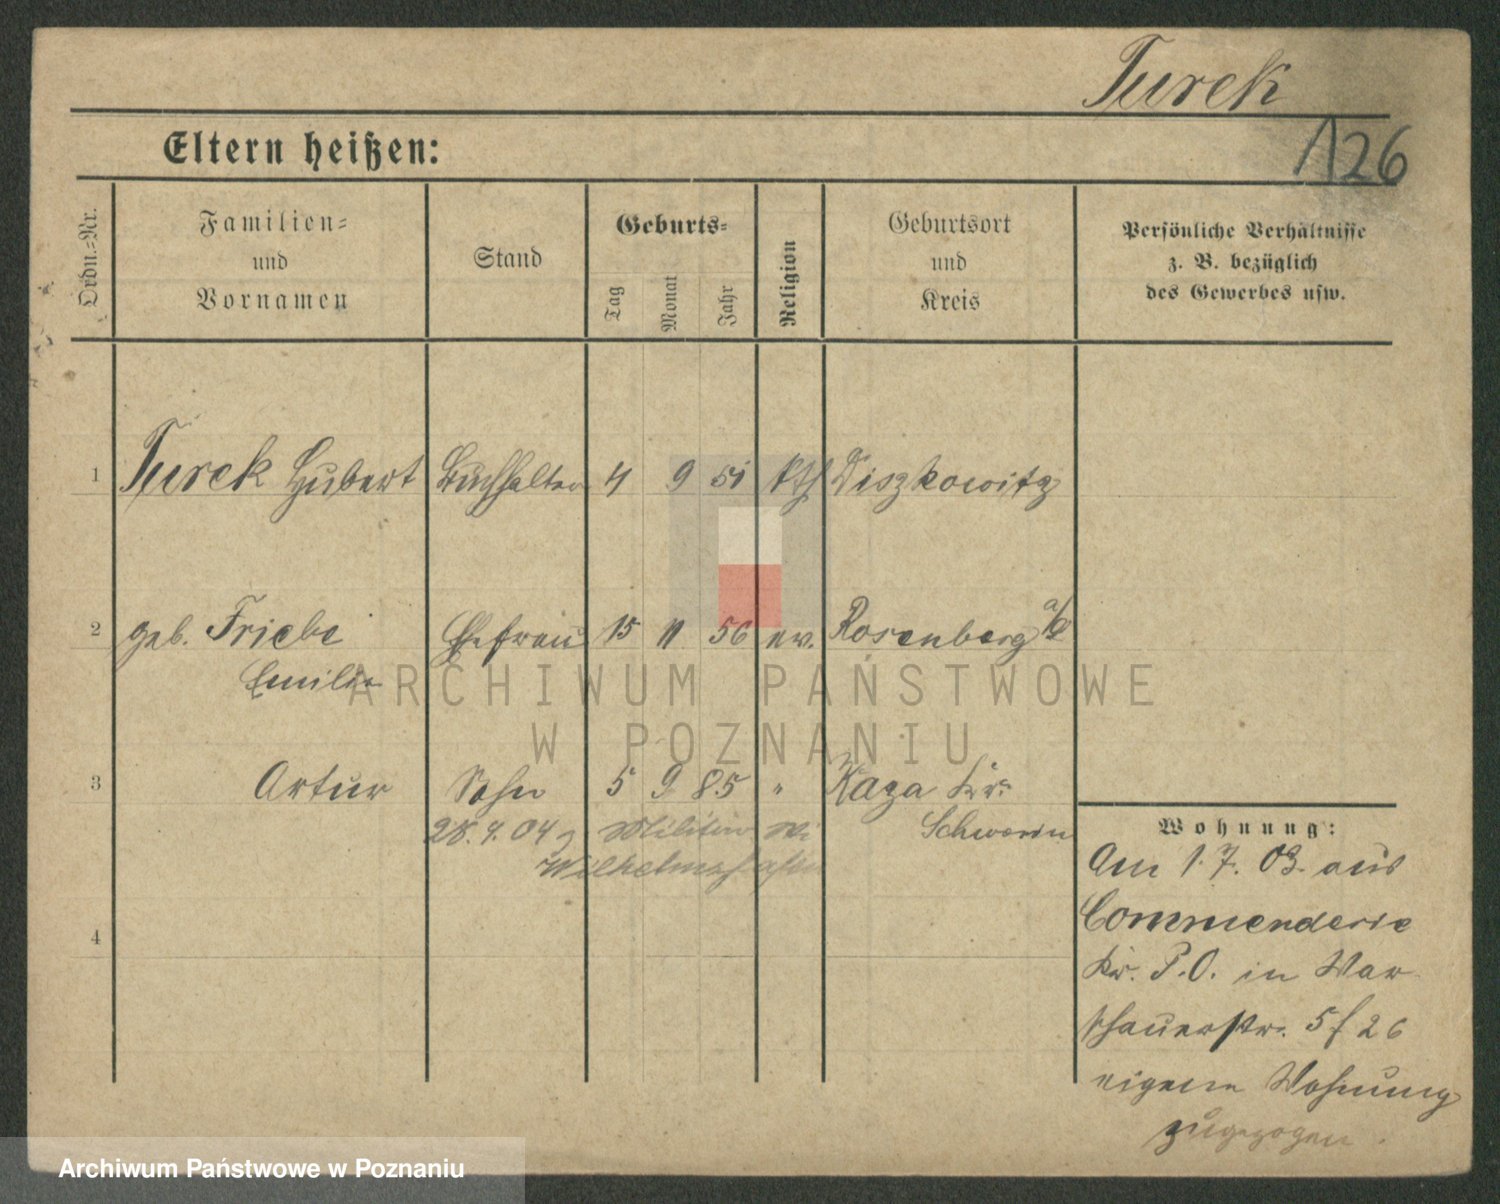 Turek
126
Eltern heißen:
Ordn.-Nr.
Familien- und Vornamen
Stand
Geburts-
Tag
Monat
Jahr
Religion
Geburtsort und Kreis
Persönliche Verhältnisse z. B. bezüglich des Gewerbes usw.
1 Turek Hubert Buchhalter 4 9 51 kth Diszkowitz
2 geb. Friebe Ehefrau 15 11 56 ev. Rosenberg
Emilie
3 Artur Sohn 5 9 85 " Kaza Kr.
28.4.04 Militär Schwerin
Wilhelmshafen
4
Wohnung:
Am 1.7.03. aus
Commenderie
Kr. P.O. in War
schauerstr. 5 f 26
eigene Wohnung
zugezogen.
ARCHIWUM PAŃSTWOWE
W POZNANIU
Archiwum Państwowe w Poznaniu